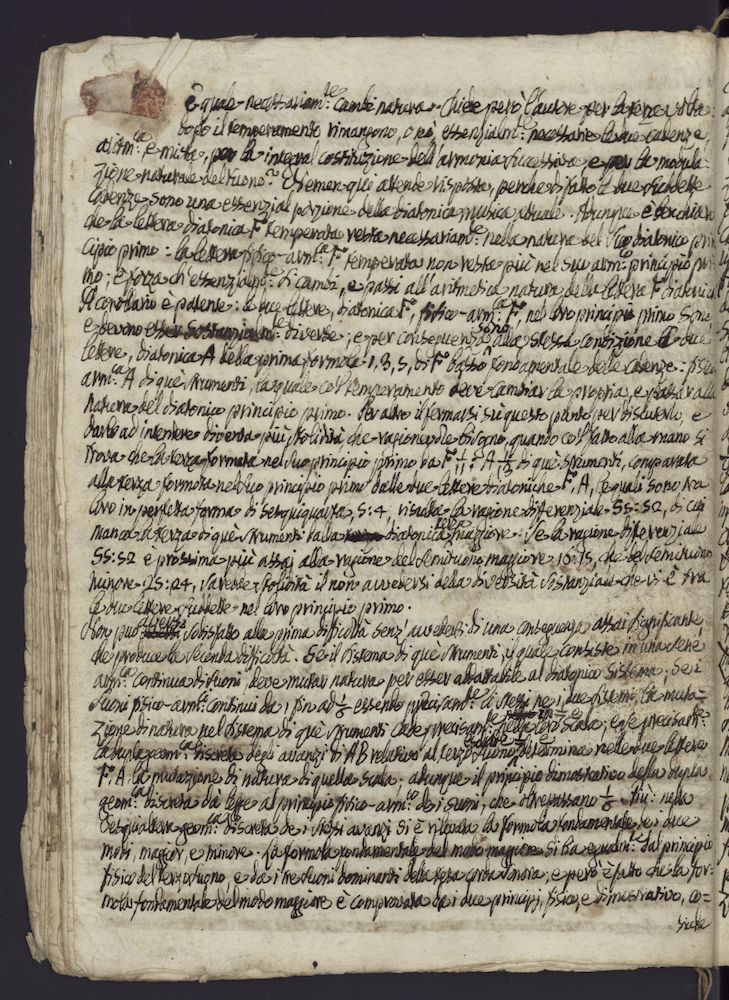 è quale necessariam.te cambi natura. Chiede però l'autore per la terza volta:
dopo il temperamento rimangono, o nò, essenzialm.te necessarie le due cadenze,
aritm.ca e mista, per la integral costituzione dell'armonia successiva, e per la modula-
zione naturale del Tuono? E nemen quì attende risposta, perche di fatto le due suddette
cadenze sono una essenzial porzione della diatonica musica attuale. Adunque è ben chiaro
che la lettera diatonica F. temperata resta necessariam.te nella natura del suo diatonico prin
cipio primo: la lettera fisico-arm.ca F. temperata non resta più nel suo arm.co principio pri
mo; è forza ch'essenzialm.te si cambi, e passi all'aritmetica natura della lettera F. diatonica
Il corollario è patente: le due lettere, diatonica F., fisico-arm.ca F., nel loro principio primo sono
e devono esser sostanzialm.te diverse; e per conseguenza sono alla stessa condizione le due
lettere, diatonica A della prima formola 1, 3, 5, di F. basso fondamentale delle cadenze: fisico
arm.ca A di què strumenti, la quale col temperamento deve cambiar la propria, e passar alla
natura del diatonico principio primo. Per altro il fermarsi sù questo punto per discuterlo, e
darlo ad intendere diventa più stolidità che ragionevole bisogno, quando col fatto alla mano si
trova che la terza formata nel suo principio primo da F. 1/11: A 1/13 di què strumenti, comparata
alla terza formata nel suo principio primo dalle due lettere diatoniche F. A, le quali sono tra
loro in perfetta forma di sesquiquarta, 5:4, risulta la ragione differenziale 55:52, di cui
manca la terza di què strumenti dalla diatonica terza maggiore. Se la ragione differenziale
55:52 è prossima più assai alla ragione del semituono maggiore 16:15, che del semituono
minore 25:24, sarebbe stolidità il non avvedersi della diversità sostanziale che vi è tra
le due lettere suddette nel loro principio primo.
Non può esser sodisfatto alla prima difficoltà senz'avvedersi di una conseguenza assai significante
che produce la seconda difficoltà. Se il sistema di què strumenti, il quale consiste in una serie
arm.ca continua di suoni, deve mutar natura per esser adattabile al diatonico sistema; se i
suoni fisico-arm.ci continui da 1 fin ad 1/6 essendo precisam.te gli stessi ne i due sistemi, la muta-
zione di natura nel sistema di què strumenti cade precisam.te nella loro scala; e se precisam.te
la dupla geom.ca discreta degli avanzi di AB relativo al terzo suono determina nelle due lettere
F. A. la mutazione di natura di quella scala; adunque il principio dimostrativo della dupla
geom.ca discreta dà legge al principio fisico-arm.co de i suoni, che oltrepassano 1/6. Più: nella
sesquialtera geom.ca discreta de i stessi avanzi si è rilevata la formola fondamentale de i due
modi, maggior, e minore. La formola fondamentale del modo maggiore si ha egualm.te dal principio
fisico del terzo suono, e da i tre suoni dominanti della tesa corda sonora; e però è fatto che la for-
mola fondamentale del modo maggiore è comprovata da i due principj, fisico, e dimostrativo, co-
sicche